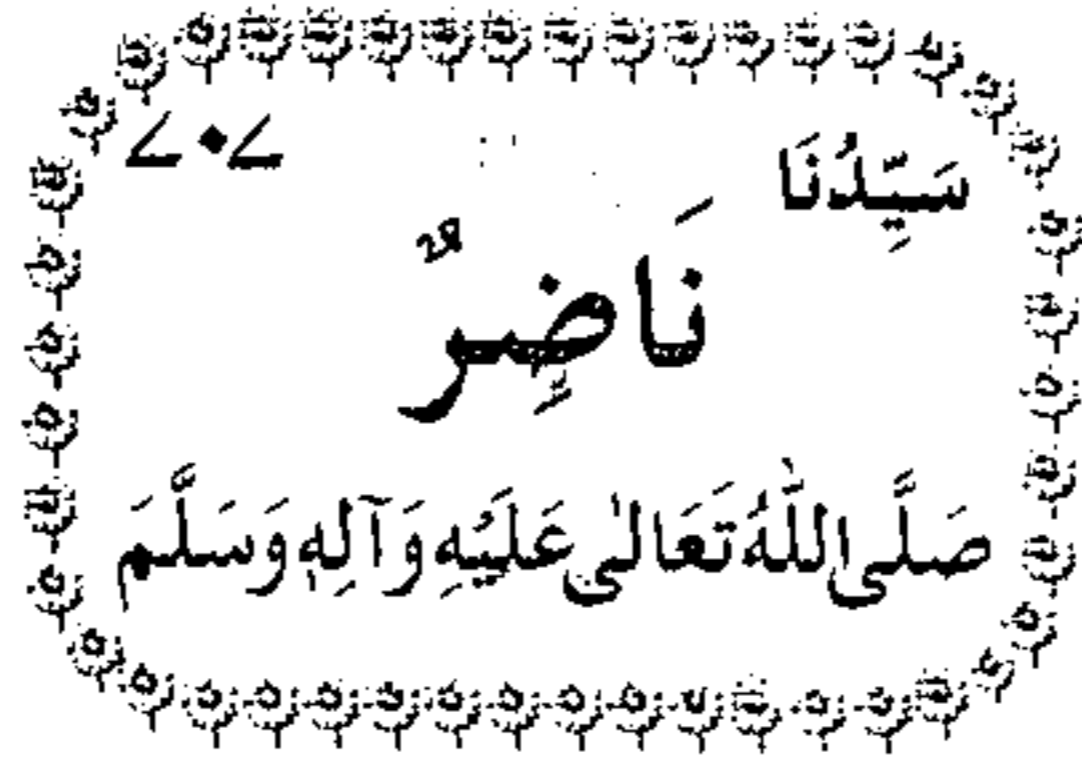 سَيِّدُنَا ۷۰۷
نَاضِرٌ
صَلَّى اللّٰهُ تَعَالٰى عَلَيْهِ وَآلِهٖ وَسَلَّمَ